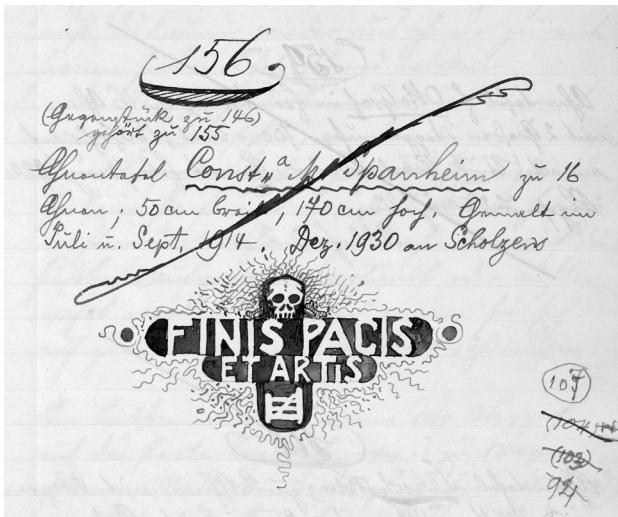 156
(Gegenstück zu 146)
gehört zu 155
Ahnentafel Const. v. Spanheim zu 16
Ahnen; 50 cm breit, 170 cm hoch. Gemalt im
Juli u. Sept. 1914. Dez. 1930 an Scholzens
FINIS PACIS
ET ARTIS
107
(103)
94